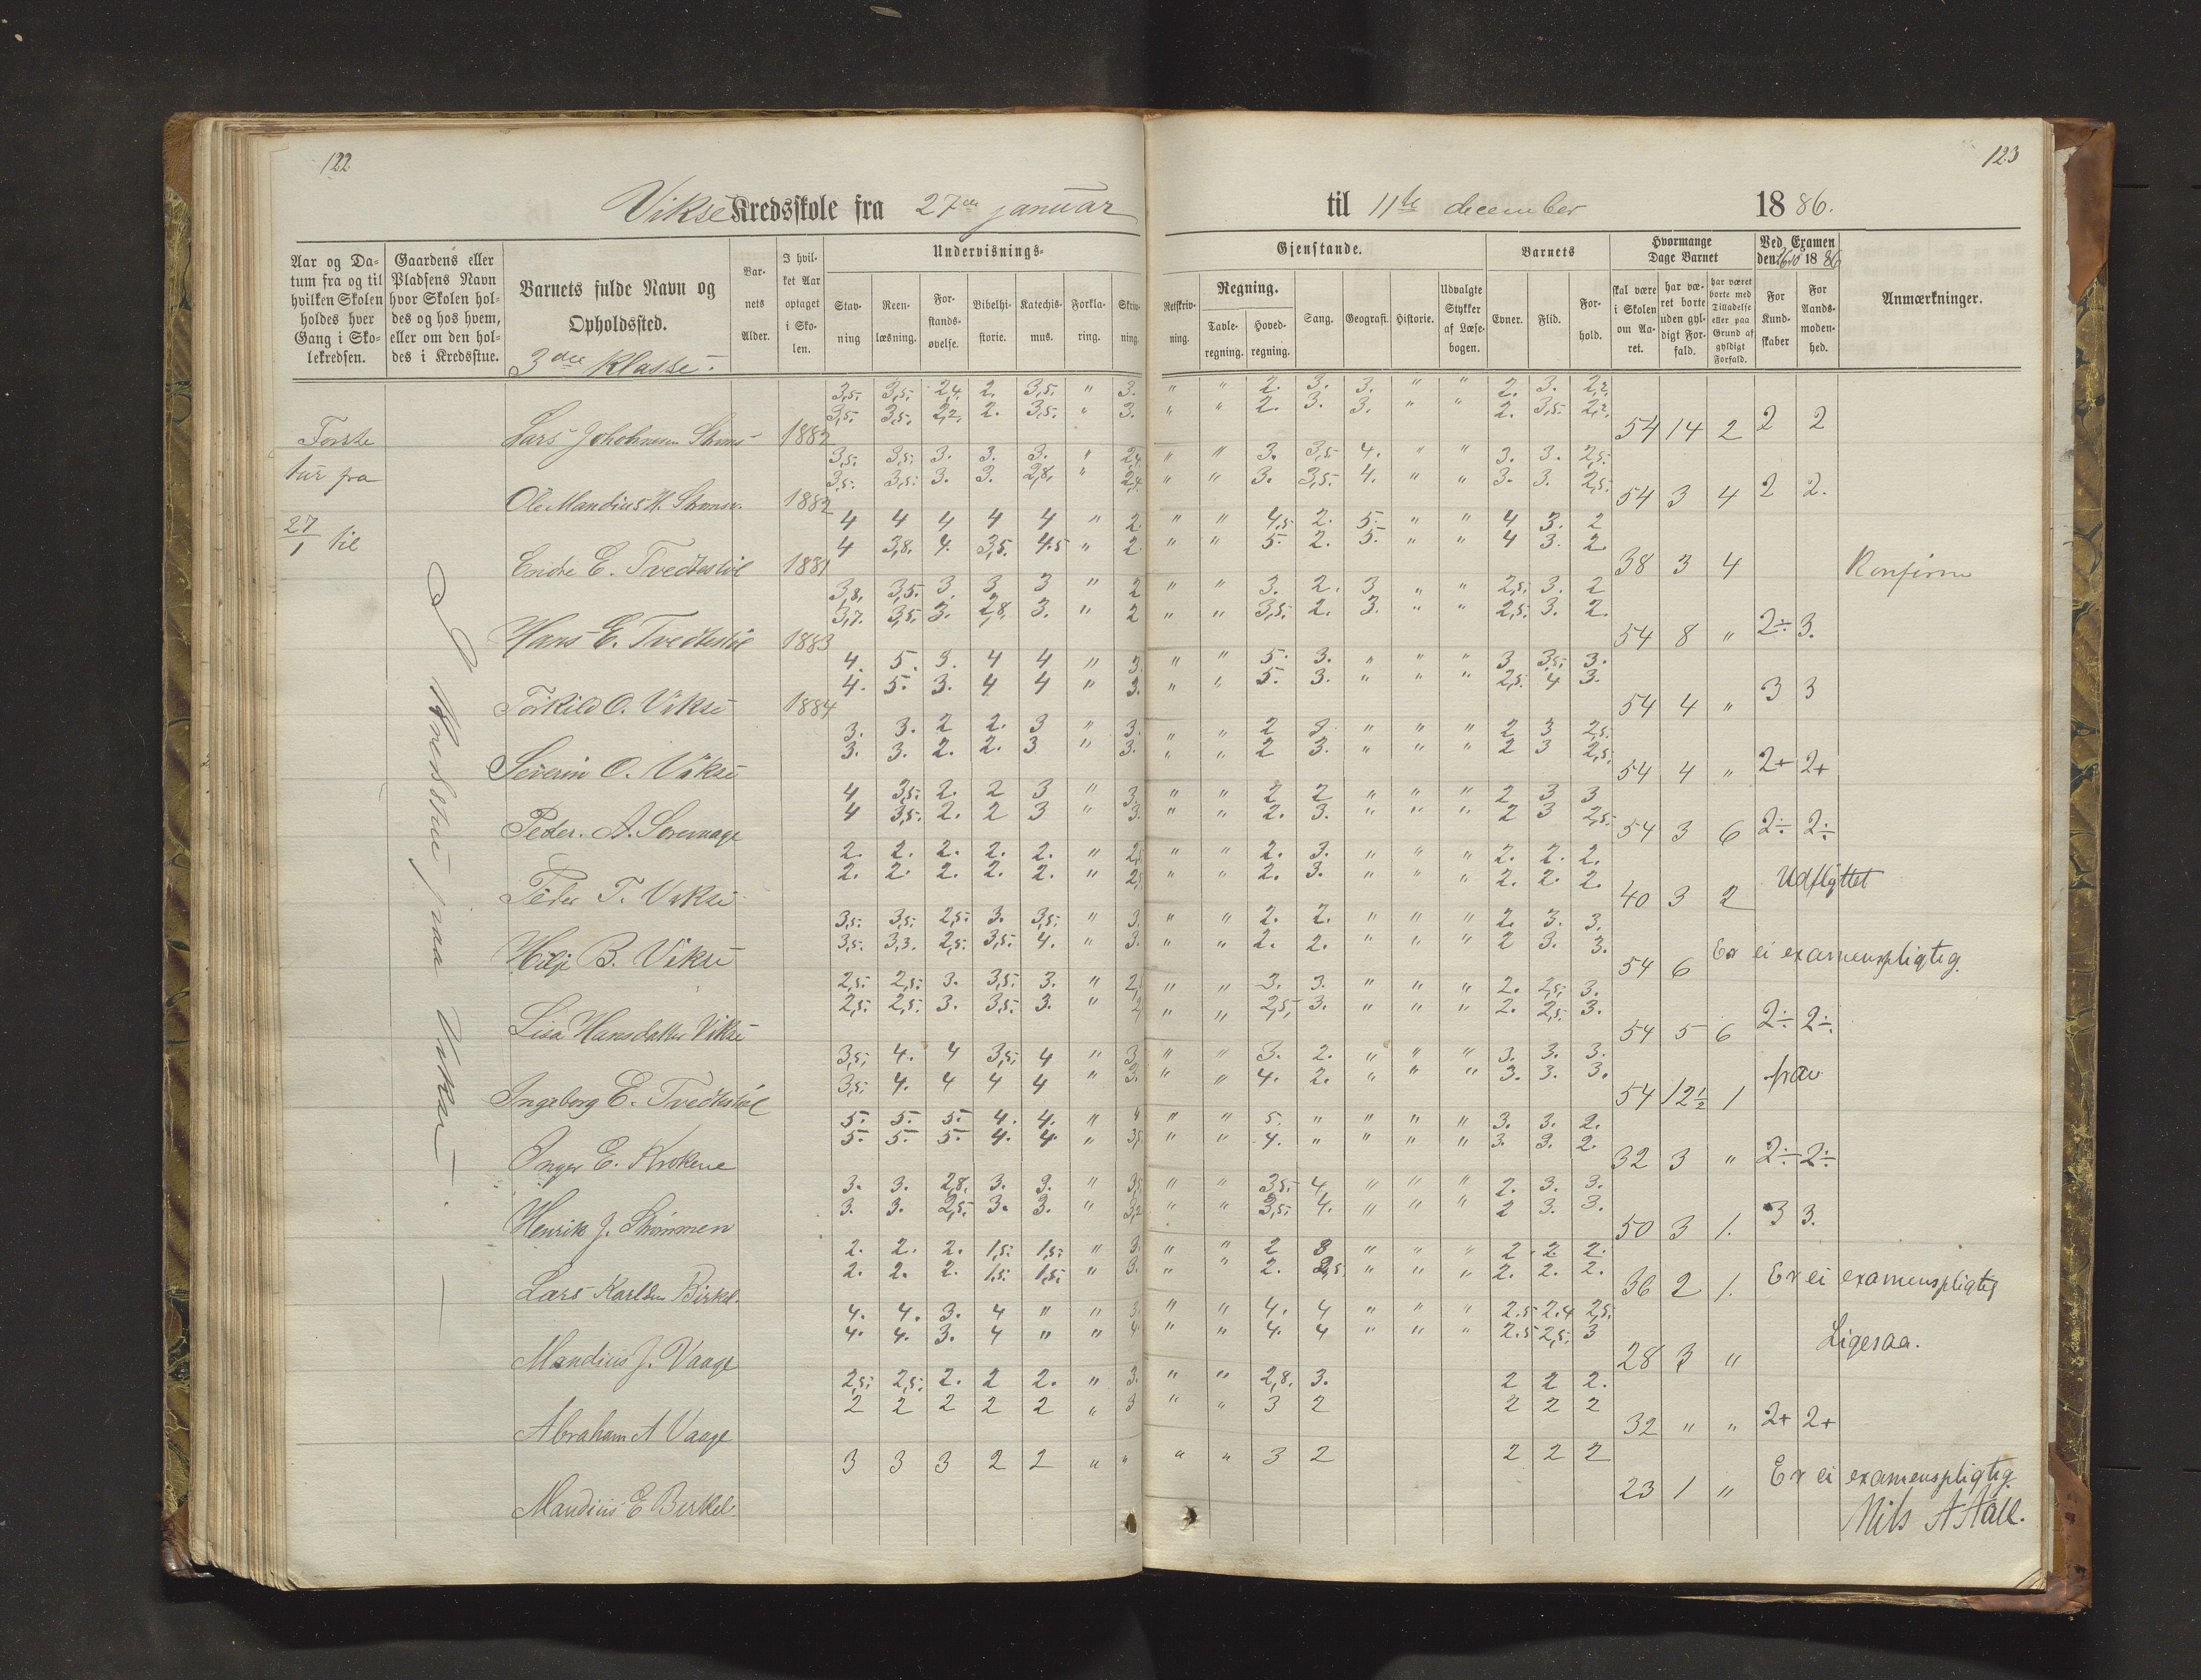 122
123
Vikse Kredsskole fra 27de januar til 11te december 1886.
Aar og Datum fra og til hvilken Skolen holdes hver Gang i Skolekredsen.
Gaardens eller Pladsens Navn hvor Skolen holdes og hos hvem, eller om den holdes i Kredsstue.
Barnets fulde Navn og Opholdssted.
Barnets Alder.
I hvilket Aar optaget i Skolen.
Undervisnings-
Gjenstande.
Stavning
Reenlæsning.
Forstandsøvelse.
Bibelhistorie.
Katechismus.
Forklaring.
Skrivning.
Retskrivning.
Regning.
Tavleregning.
Hovedregning.
Sang.
Geografi.
Historie.
Udvalgte Stykker af Læsebogen.
Barnets
Evner.
Flid.
Forhold.
Hvormange Dage Barnet
skal være i Skolen om Aaret.
har været borte uden gyldigt Forfald.
har været borte med Tilladelse eller paa Grund af gyldigt Forfald.
Ved Examen den 16/10 1886
For Kundskaber
For Aandsmodenhed.
Anmærkninger.
3die Klasse.
3,5. 3,5. 2,4. 2. 3,5. " 3. " " 2. 3. 3. " " 2. 3. 2,2.
3,5. 3,5. 2,2. 2. 3,5. " 3. " " 2. 3. 3. " " 2. 3,5. 2,2.
Første Lars 1882 54 14 2 2 2
3,5. 3,5. 3. 3. 3. " 2,4. " " 3. 3,5 4. " " 3. 3. 2,5.
tur fra 3,5. 3,5. 3. 3. 2,8. " 2,4. " " 3. 3,5. 4. " " 3. 3. 2,5.
Ole Mandius H. 1882 54 3 4 2 2.
4 4 4 4 4 " 2. " " 4,5 2. 5. " " 4 3. 2
27/1 til 4 3,8. 4. 3,5. 4.5 " 2. " " 5. 2. 5. " " 4 3. 2
Endre E. Tvedtestøl 1881 38 3 4 Konfirm
3,8. 3,5. 3. 3 3 " 2 " " 3. 2. 3 " " 2,5. 3. 2
3,7. 3,5. 3. 2,8. 3. " 2 " " 3,5. 2. 3. " " 2,5. 3. 2.
Hans E. Tvedtestøl 1883 54 8 " 2÷ 3.
4. 5. 3. 4 4 " 3. " " 5. 3. " " " 3 3,5. 3.
4. 5. 3. 4 4 " 3. " " 5. 3. " " " 2,5. 4 3.
Torkild O. Vikse 1884 54 4 " 3 3
3. 3. 2 2. 3 " 3. " " 2 3. " " " 2 3 2,5.
3. 3. 2. 2. 3 " 3. " " 2 3. " " " 2 3 2,5.
Severin O. Vikse 54 4 " 2+ 2+
4 3,5. 2. 2 3 " 3 " " 2 2 " " " 2 3 3
4 3,5. 2. 2 3 " 3. " " 2. 3. " " " 2 3 2,5.
Peder. A. 54 3 6 2÷ 2÷
2. 2. 2. 2. 2. " 2,5 " " 2. 3. " " " 2. 2. 2.
2. 2. 2. 2. 2. " 2,5 " " 2. 3. " " " 2. 2. 2.
Peder T. Vikse 40 3 2 Udflyttet
3,5. 3,5. 2,5. 3. 3,5. " 3. " " 2. 2. " " " 2. 3. 3.
3,5. 3,3. 2,5. 3,5. 4. " 3. " " 2. 2. " " " 2 3. 3.
B. Vikse 54 6 Er ei examenspligtig.
2,5. 2,5. 3. 3,5. 3. " " " 3. 3. " " " 2. 2,5. 3.
2,5. 2,5. 3. 3,5. 3. " " " 2,5. 3. " " " 2. 2,5. 3.
Lisa Hansdatter Vikse 54 5 6 2÷ 2÷
3,5. 4. 4 3,5. 4 " 3 " " 3. 2. " " " 3. 3. 3.
3,5. 4. 4 4 4 " 3. " " 4. 2. " " " 3. 3. 3.
Ingeborg E. Tvedtestøl 54 12½ 1
5. 5. 5. 4. 4. " 4 " " 5. " " " " 3. 3. 2.
5. 5. 5. 4. 4. " 3,5 " " 4. " " " " 3. 3. 2.
Inger E. Krokene 32 3 " 2÷ 2÷
3. 3. 2,8. 3. 3. " 3,5 " " 3,5. 4 " " " 2. 3. 3.
3. 3. 2,5. 3. 3. " 3,2 " " 3,5. 4. " " " 2 3. 3.
Henrik J. Strømmen 50 3 1. 3 3.
2. 2. 2. 1,5. 1,5. " 3. " " 2 3 " " " 2. 2. 2.
2. 2. 2. 1,5. 1,5. " 3. " " 2. 2,5 " " " 2. 2. 2.
Lars Karlsen Birkel. 36 2 1. Er ei examenspligtig
4. 4. 3. 4 " " 3. " " 4. 4 " " " 2.5 2.4 2,5.
4. 4. 3. 4 " " 4 " " 4. 4 " " " 2.5 2,5. 3
Mandius J. Vaage 28 3 " Ligesaa.
2,5. 2,5. 2. 2 2. " 3. " " 2,8. 3. 2 2 2.
2 2 2 2 2 " 3 " " 3 2 2 2 2
Abraham A Vaage 32 " " 2+ 2+
3 3 3 2 2 " " " " 3 2 2 2 2
Mandius E Birkel. 23 1 " Er ei examenspligtig.
Nils A Aall.
I paa Vikse.